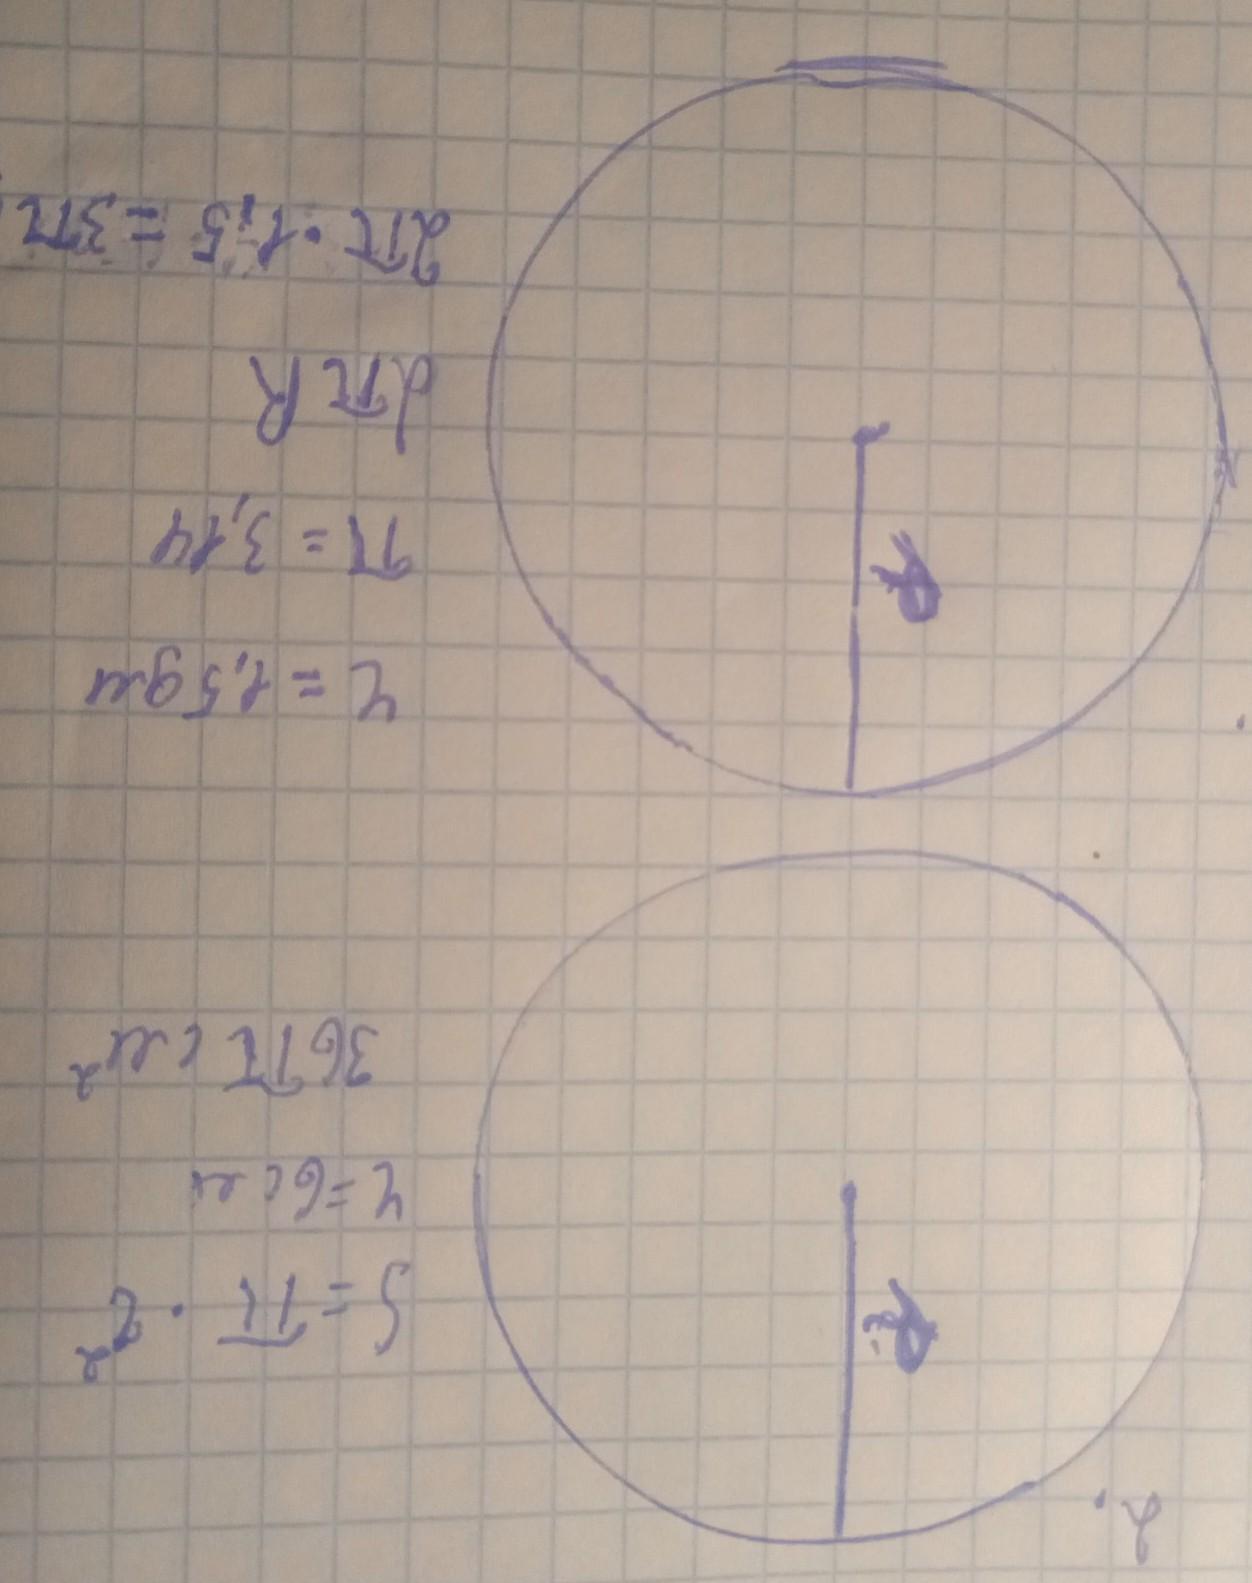 2.
R
S = π · r²
r = 6 см
36π см²
R
r = 1,5 дм
π = 3,14
2πR
2π · 1,5 = 3π